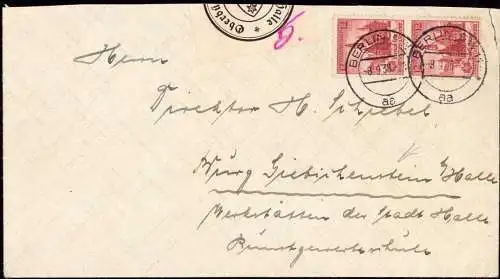 Halle * Oberbü
BERLIN
8.9.3
BERLIN
aa
aa
Herrn
Direktor H. Schiebel
Burg Giebichenstein / Halle
Werkstätten der Stadt Halle
Kunstgewerbeschule